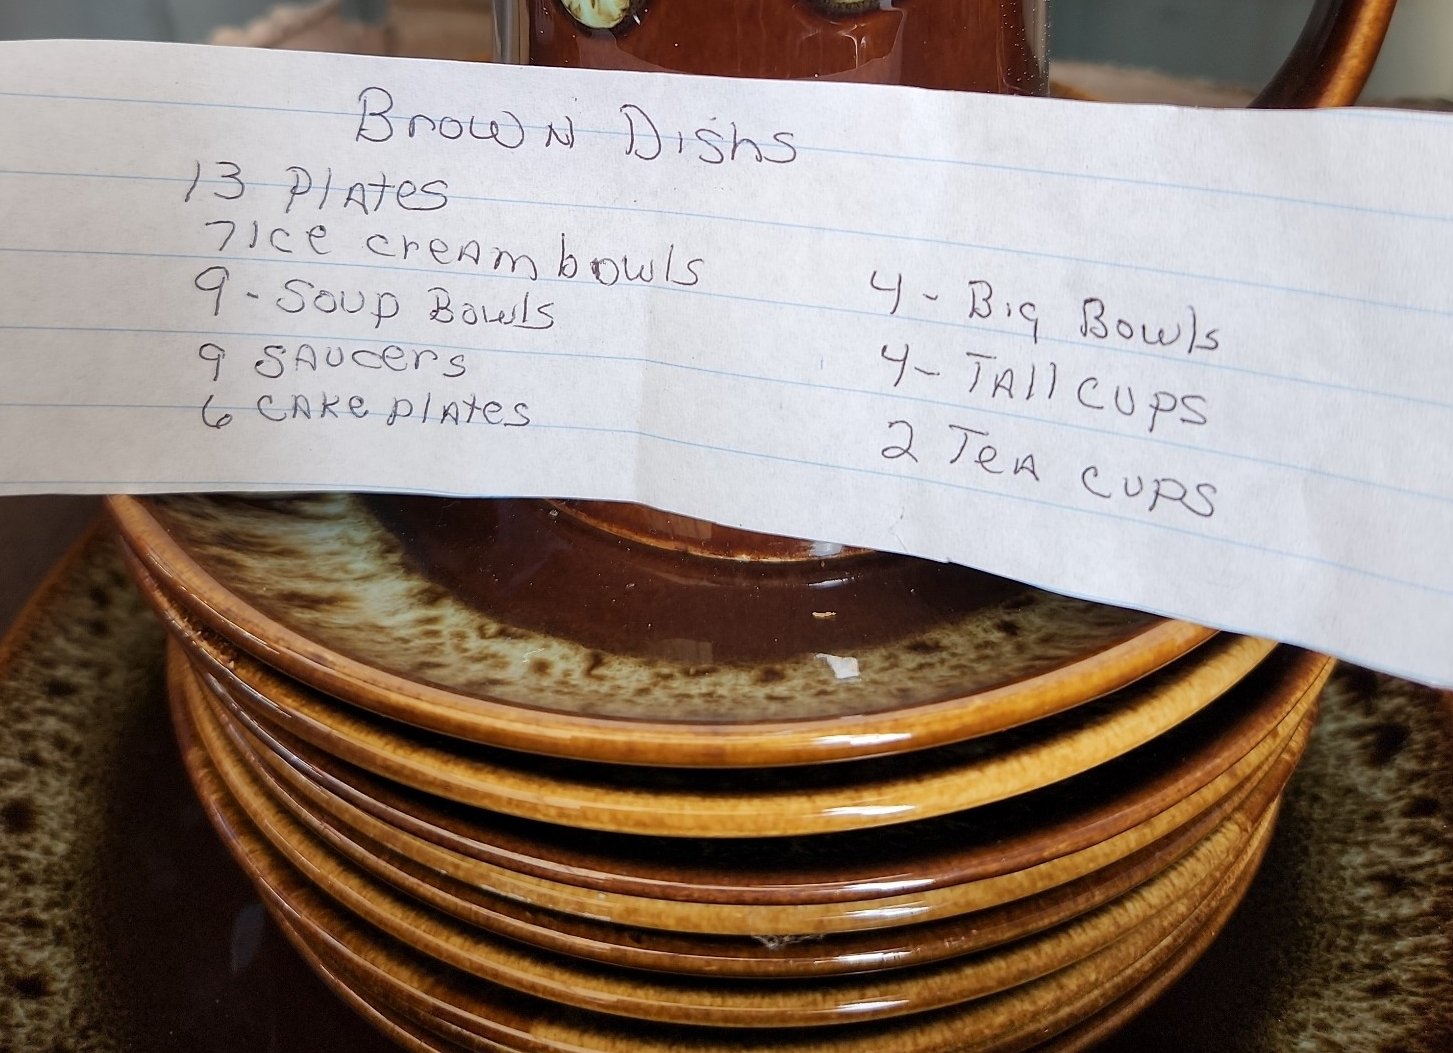 Brown Dishs
13 Plates
7 Ice cream bowls
9 - Soup Bowls
9 Saucers
6 Cake plates
4 - Big Bowls
4 - Tall Cups
2 Tea Cups